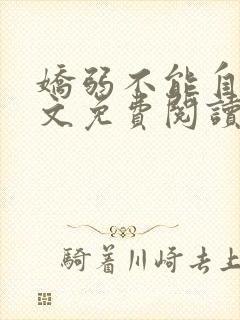 嬌弱不能自
文免費閱讀
騎著川崎去上